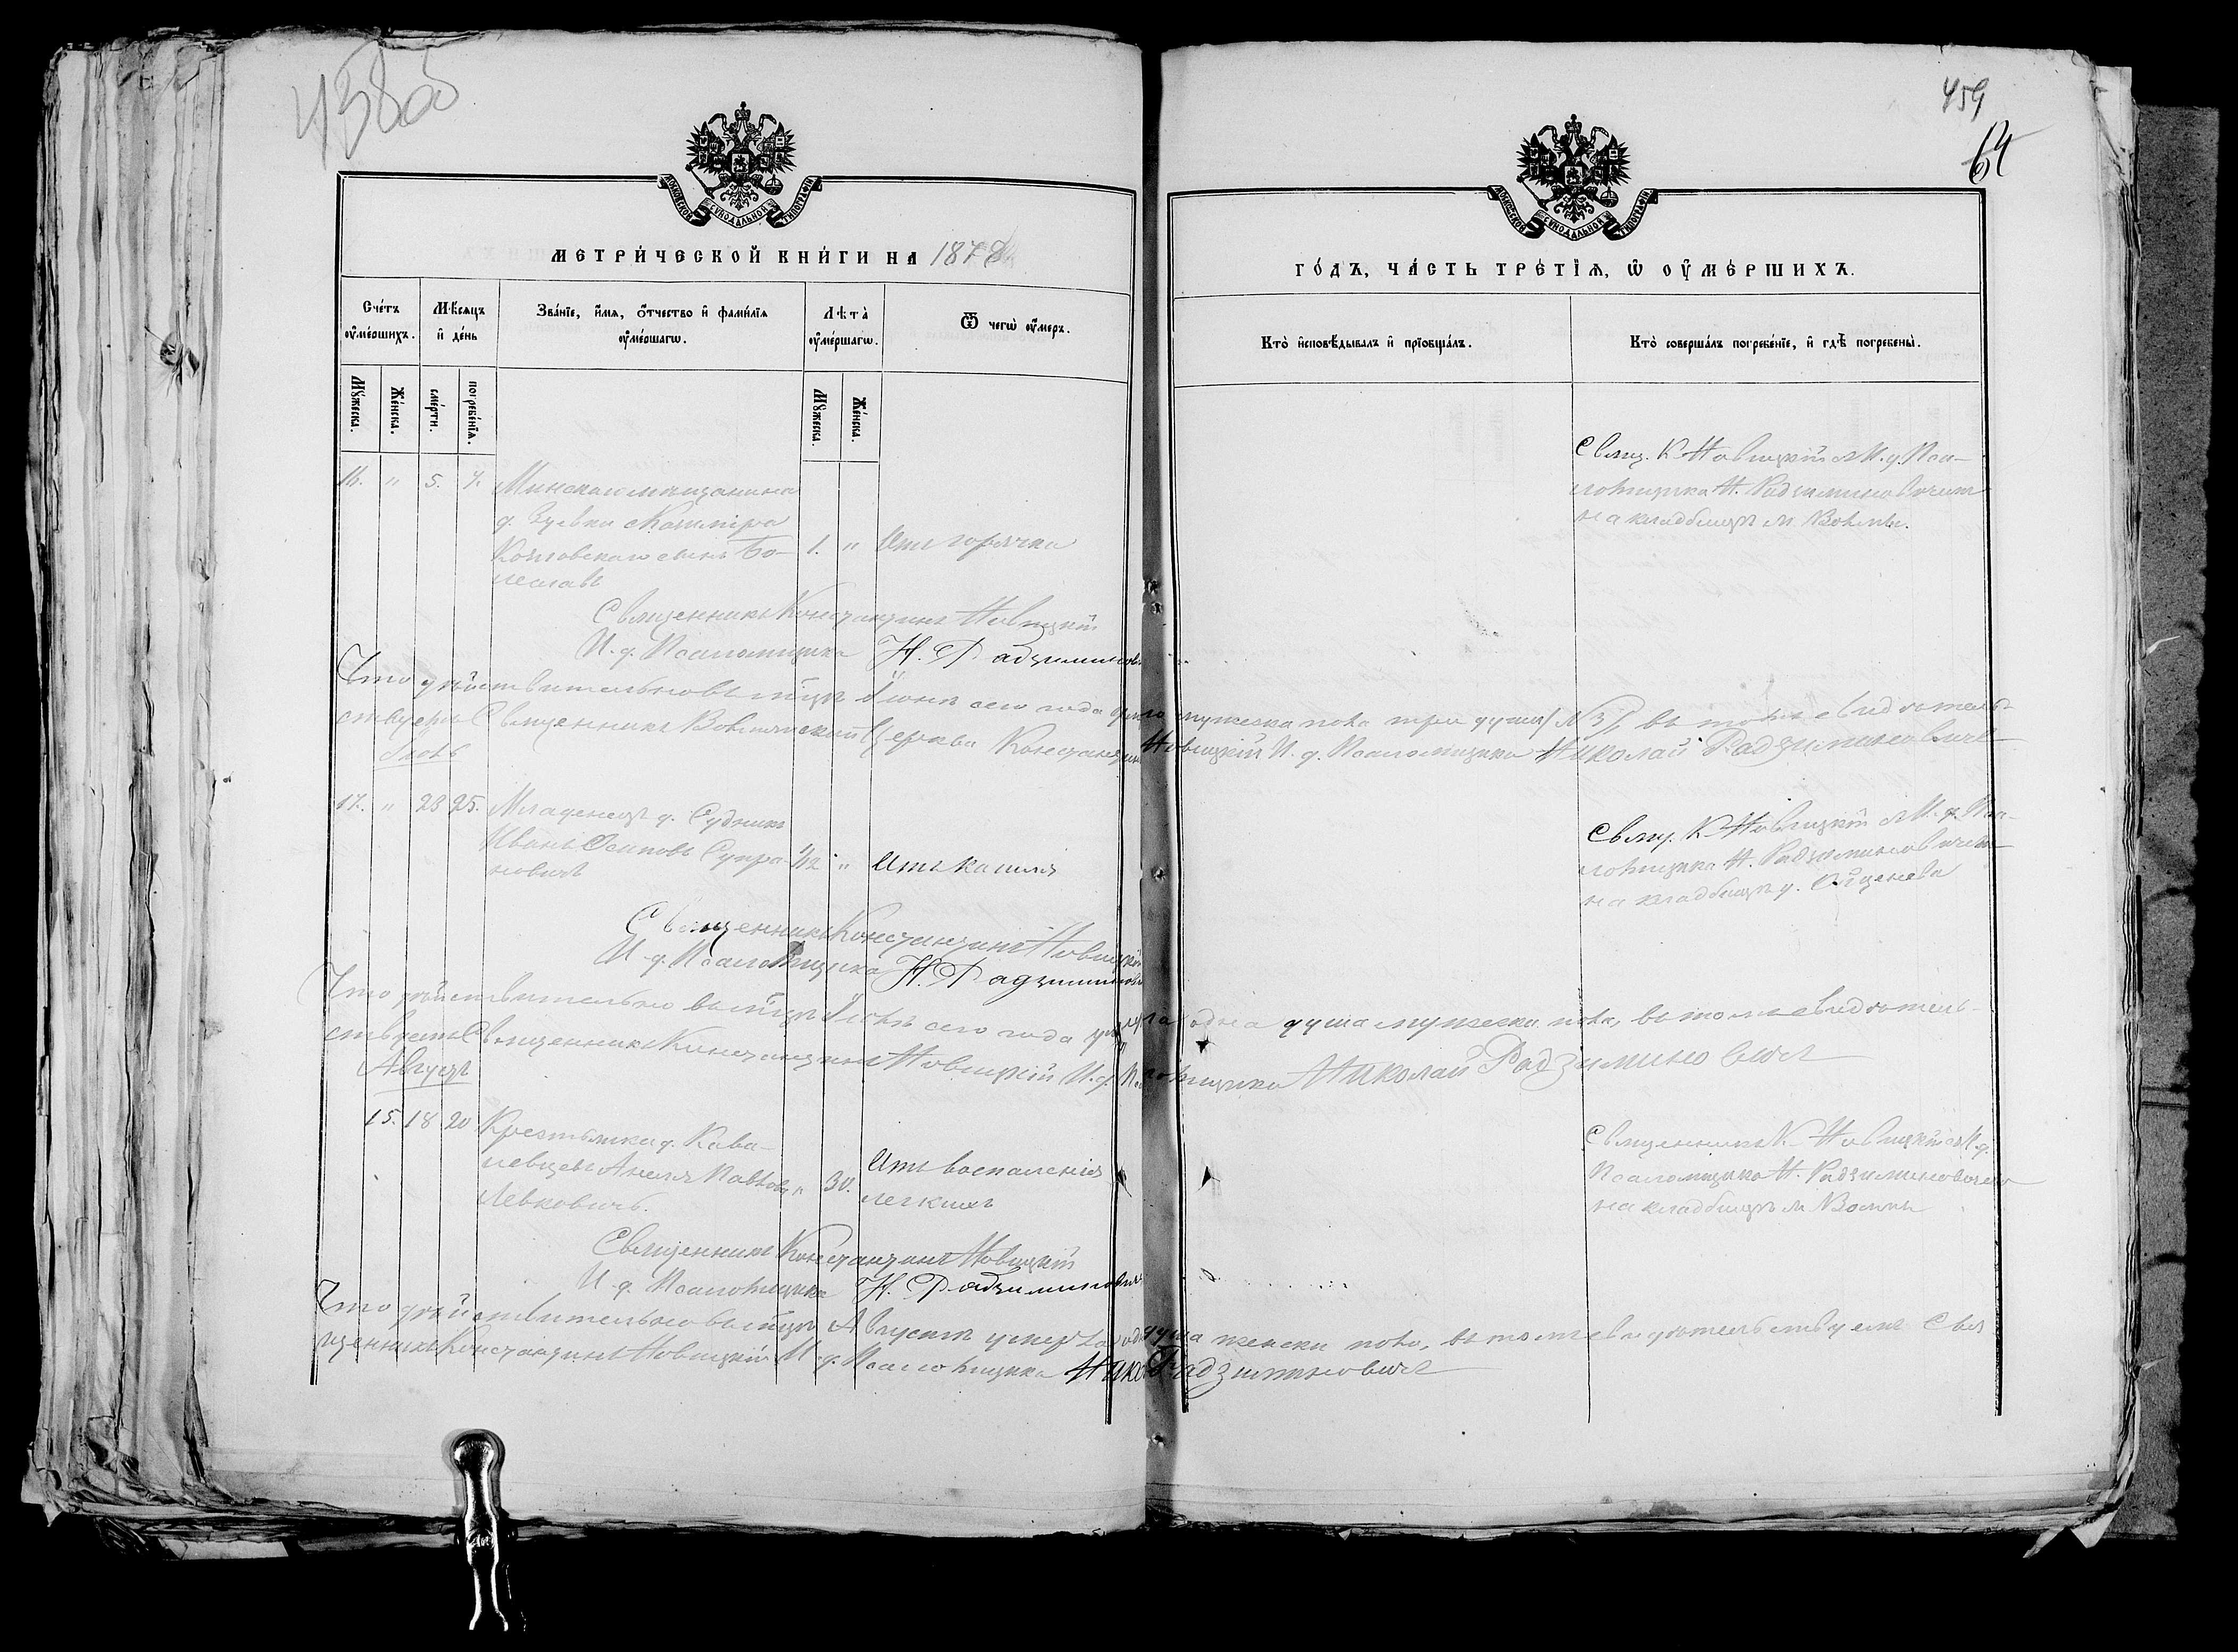 459
64
МОСКОВСКОЙ СУНОДАЛЬНОЙ ТИПОГРАФІИ
МОСКОВСКОЙ СУНОДАЛЬНОЙ ТИПОГРАФІИ
МЕТРИ́ЧЕСКОЙ КНИ́ГИ НА 1878
ГО́ДЪ, ЧА́СТЬ ТРЕ́ТІѦ, Ѡ ОУ҆МЕ́РШИХЪ.
Сче́тъ оу҆ме́ршихъ.
Мѣ́сѧцъ и҆ де́нь
Зва́нїе, и҆́мѧ, ѻ҆́тчество и҆ фами́лїѧ оу҆ме́ршагѡ.
Лѣ́та̀ оу҆ме́ршагѡ.
Ѿ чегѡ̀ оу҆́меръ.
Кто̀ и҆сповѣ́дывалъ и҆ прїобща́лъ.
Кто̀ соверша́лъ погребе́нїе, и҆ гдѣ̀ погребены̀.
Мꙋ́жеска.
Же́нска.
сме́рти.
погребе́нїѧ.
Мꙋ́жеска.
Же́нска.
16. " 5. 7. Минскаго мѣщанина
д. Зуевки Казиміра
сынъ Бо-
леславъ
1. " Отъ горячки
Свящ. К. Новицкій с И. д. Пса-
ломщика Н. Радзиминовичемъ
на кладбищѣ м. Волмы.
Священникъ Константинъ Новицкій
И. д. Псаломщика Н. Радзиминович
Что дѣйствительно въ м-цѣ Іюнѣ сего года мужеска пола три души (№ 3), въ томъ свидѣтель-
ствуемъ Священникъ Волмянской Церкви Константинъ Новицкій И. д. Псаломщика Николай Радзиминовичъ
Іюль
17. " 23 25. Младенецъ д. Судники
Иванъ Осиповъ Супра-
новичъ
1/12 " Отъ кашля
Свящ. К. Новицкій с И. д. Пса-
ломщика Н. Радзиминовичемъ
на кладбищѣ д.
Священникъ Константинъ Новицкій
И. д. Псаломщика Н. Радзиминов
Что дѣйствительно въ м-цѣ Іюлѣ сего года умерла одна душа мужеска пола, въ томъ свидѣтель-
ствуемъ Священникъ Константинъ Новицкій И. д. Псаломщика Николай Радзиминовичъ
Августъ
15. 18 20 Крестьянка д. Кова-
левщевъ Анеля Павлова
Левковичъ.
" 30. Отъ воспаленія
легкихъ
Священникъ К. Новицкій с И. д.
Псаломщика Н. Радзиминовичемъ
на кладбищѣ м. Волмы
Священникъ Константинъ Новицкій
И. д. Псаломщика Н. Радзиминович
Что дѣйствительно въ м-цѣ Августѣ умерла одна душа женска пола, въ томъ свидѣтельствуемъ Свя
щенникъ Константинъ Новицкій И. д. Псаломщика Никол Радзиминовичъ